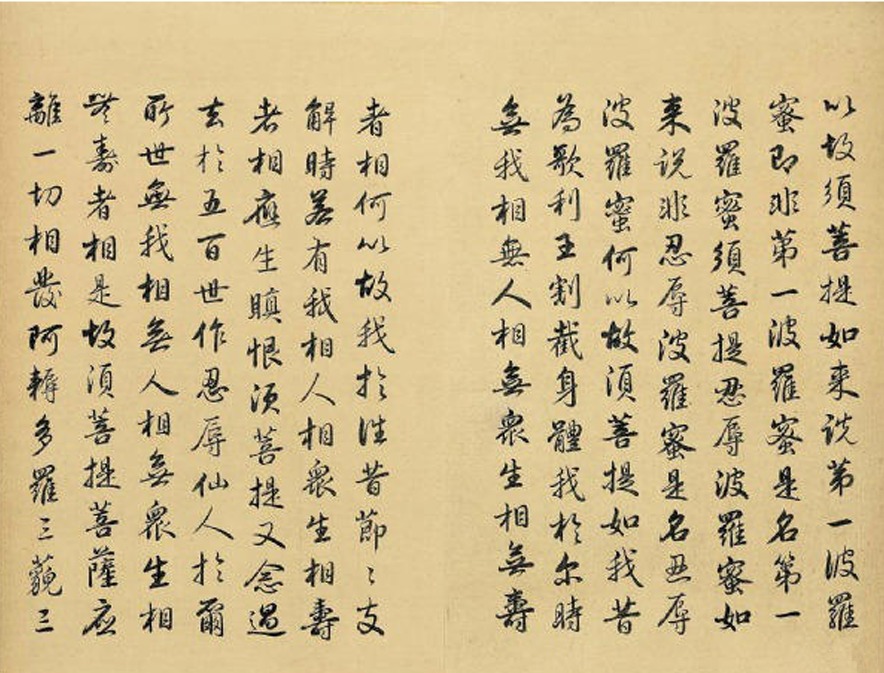 以故須菩提如来説第一波羅
蜜即非第一波羅蜜是名第一
波羅蜜須菩提忍辱波羅蜜如
来説非忍辱波羅蜜是名忍辱
波羅蜜何以故須菩提如我昔
為歌利王割截身體我於尔時
無我相無人相無衆生相無壽
者相何以故我於往昔節〻支
解時若有我相人相衆生相壽
者相應生瞋恨須菩提又念過
去於五百世作忍辱仙人於爾
所世無我相無人相無衆生相
無壽者相是故須菩提菩薩應
離一切相發阿耨多羅三藐三